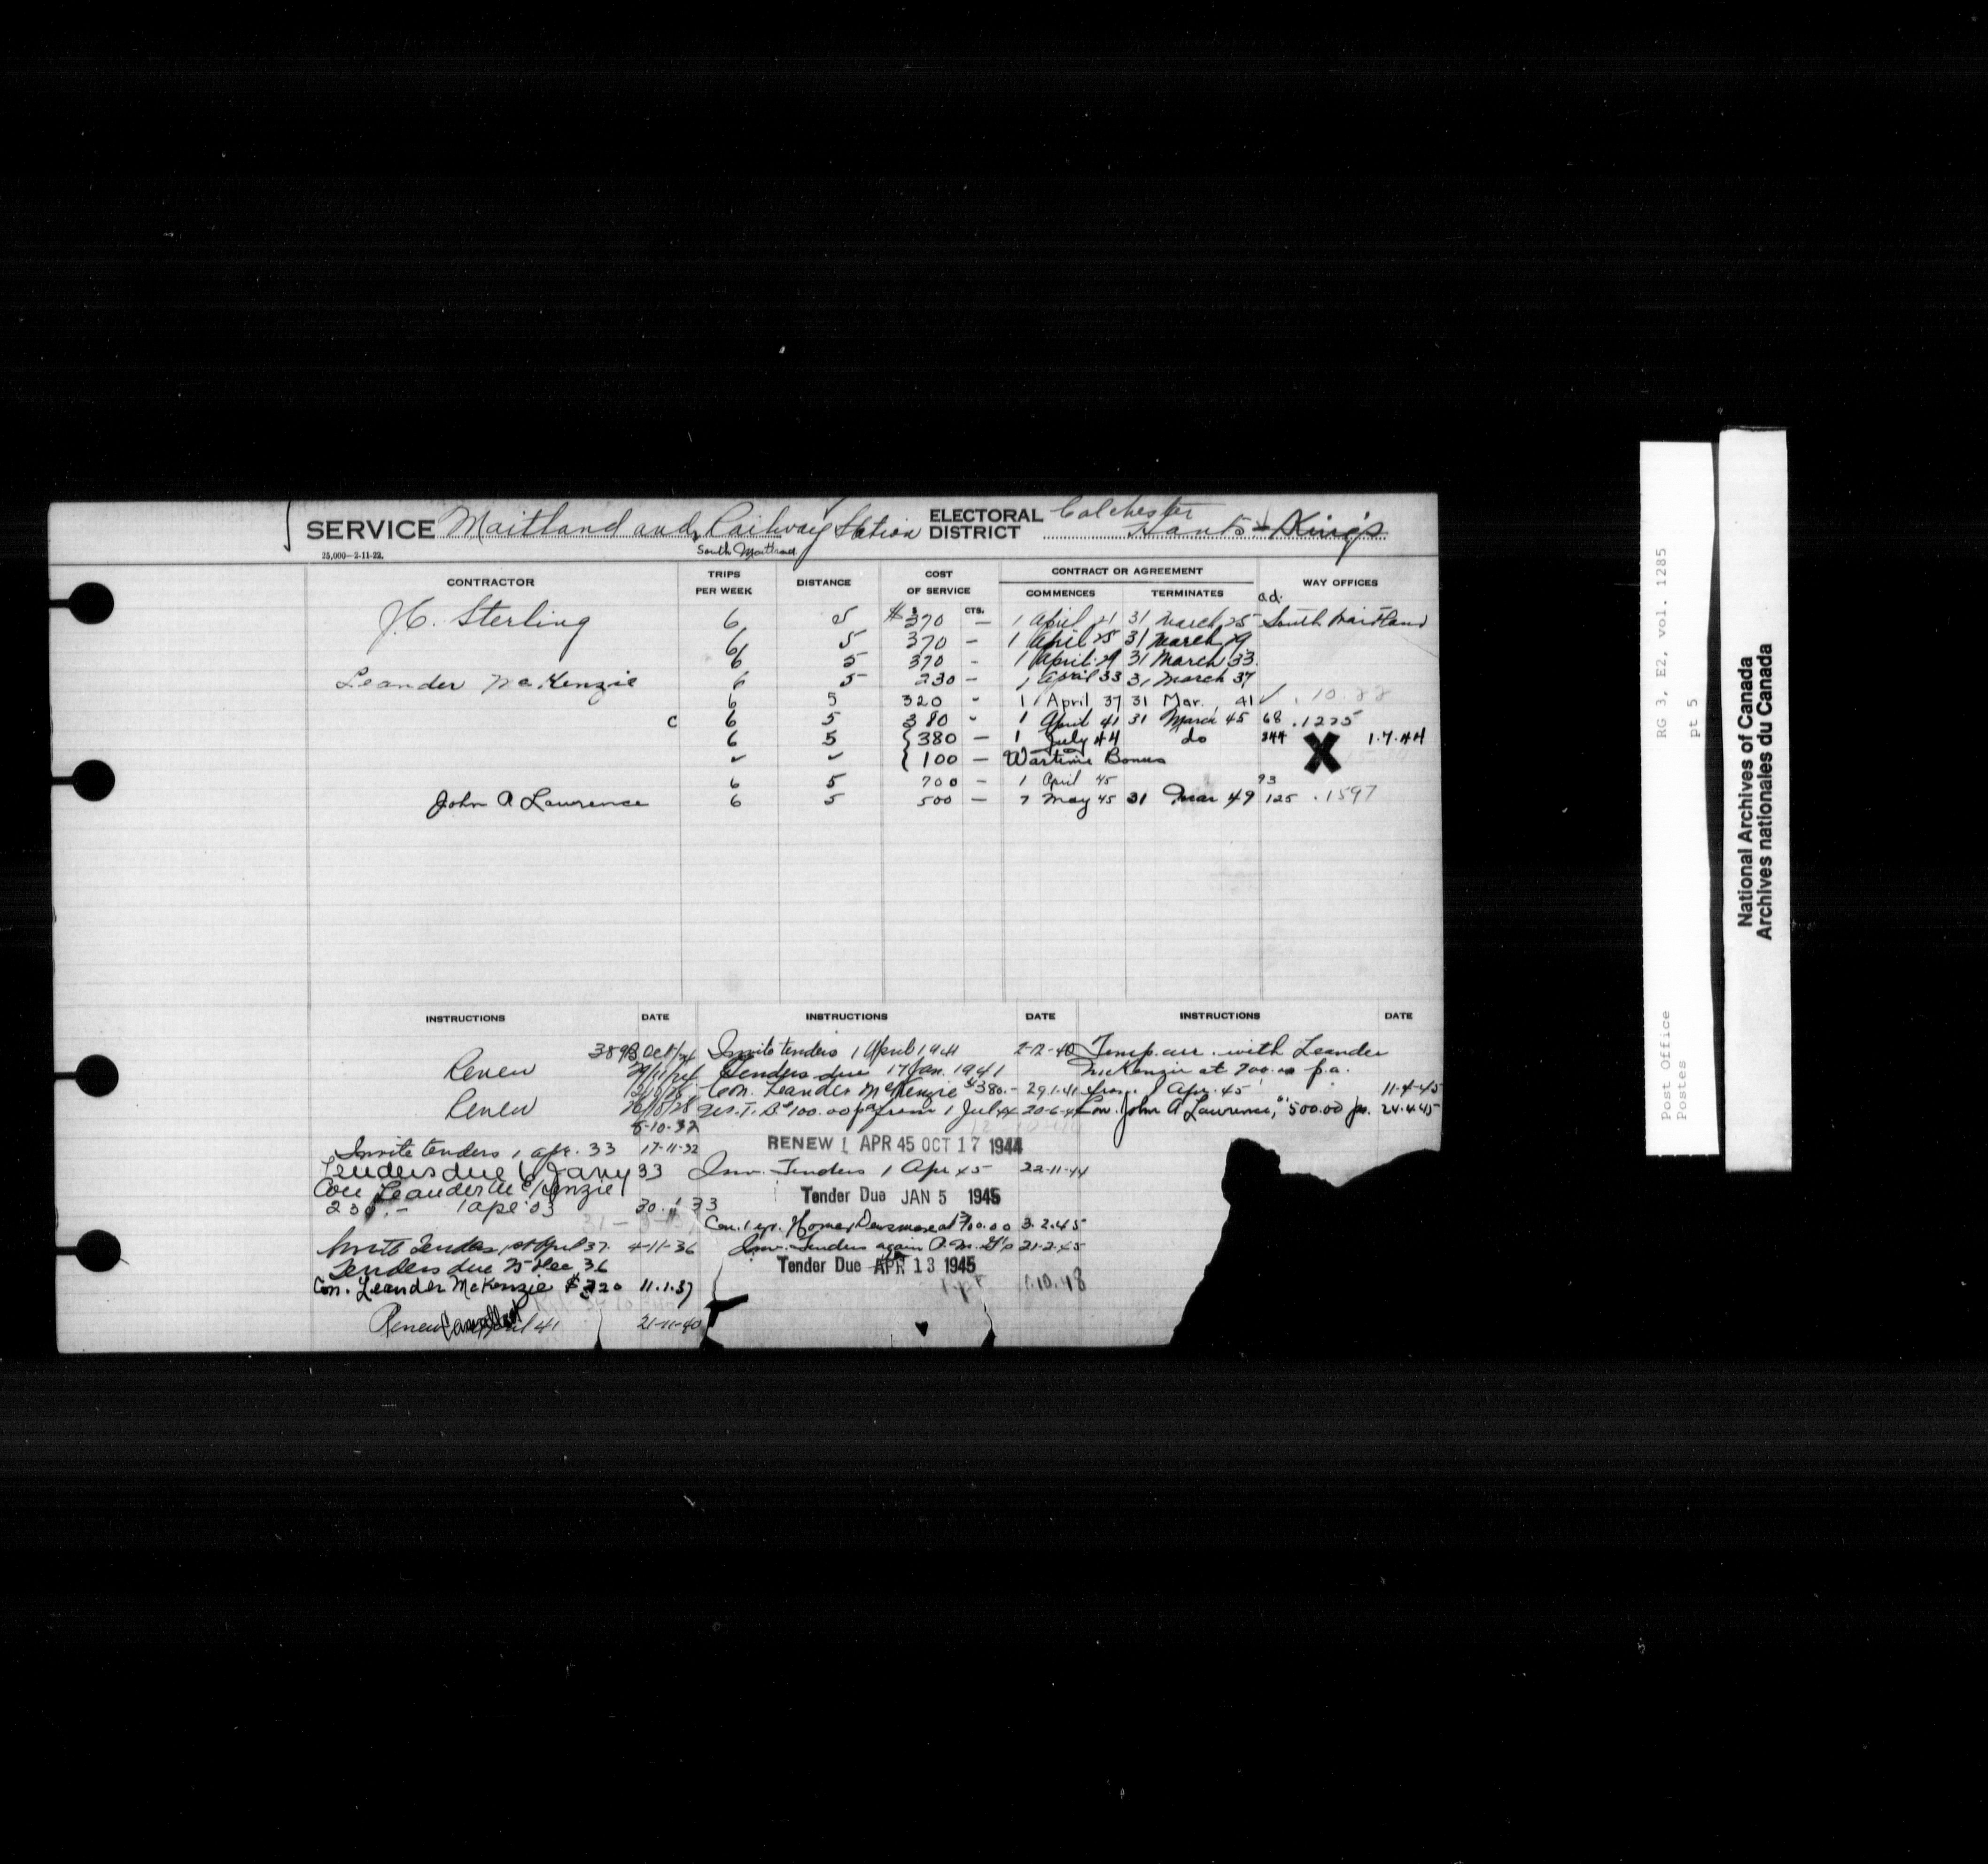 SERVICE Maitland and Railway Station ELECTORAL DISTRICT Colchester Hants - King's
South Maitland
25,000—2-11-22.
CONTRACTOR TRIPS PER WEEK DISTANCE COST OF SERVICE CONTRACT OR AGREEMENT COMMENCES TERMINATES WAY OFFICES
CTS. ad.
J.C. Sterling 6 5 $370 — 1 April 21 31 March 25 South Maitland
6 5 370 — 1 April 25 31 March 29
6 5 370 - 1 April 29 31 March 33.
Leander McKenzie 6 5 230 - 1 April 33 31 March 37
6 5 320 " 1 April 37 31 Mar. 41 ✓ . 10.88
c 6 5 380 " 1 April 41 31 March 45 68 .1225
6 5 380 — 1 July 44 do 244 X 1.7.44
✓ ✓ 100 — Wartime Bonus
6 5 700 — 1 April 45 93
John A Lawrence 6 5 500 — 7 May 45 31 Mar 49 125 .1597
INSTRUCTIONS DATE INSTRUCTIONS DATE INSTRUCTIONS DATE
Renew
Renew
5-10-32
Invite tenders 1 apr. 33 17-11-32
Tenders due 6 Jany 33
Con Leander McKenzie
230.- 1 apr 33 30. " 33
Invite Tenders, 1st April 37. 4-11-36
Tenders due 25 Dec 36
Con. Leander McKenzie $320 11.1.37
Renew Cancelled April 41 21-11-40
Invite tenders 1 April 1941 2-12-40
Tenders due 17 Jan. 1941
Con. Leander McKenzie $380.- 29.1.41
$100.00 pa from 1 July 44 20-6-44
RENEW 1 APR 45 OCT 17 1944
Inv. Tenders 1 Apr 45 22-11-44
Tender Due JAN 5 1945
Con. 1 apr. Homer Densmore at 700.00 3.2.45
Inv. Tenders again P.M. G's 21-2-45
Tender Due APR 13 1945
1.10.48
Temp. arr. with Leander
McKenzie at 700.00 p.a.
from 1 Apr. 45 11-4-45
Con. John A Lawrence, $500.00 pa. 24.4.45
RG 3, E2, vol. 1285
pt 5
Post Office
Postes
National Archives of Canada
Archives nationales du Canada